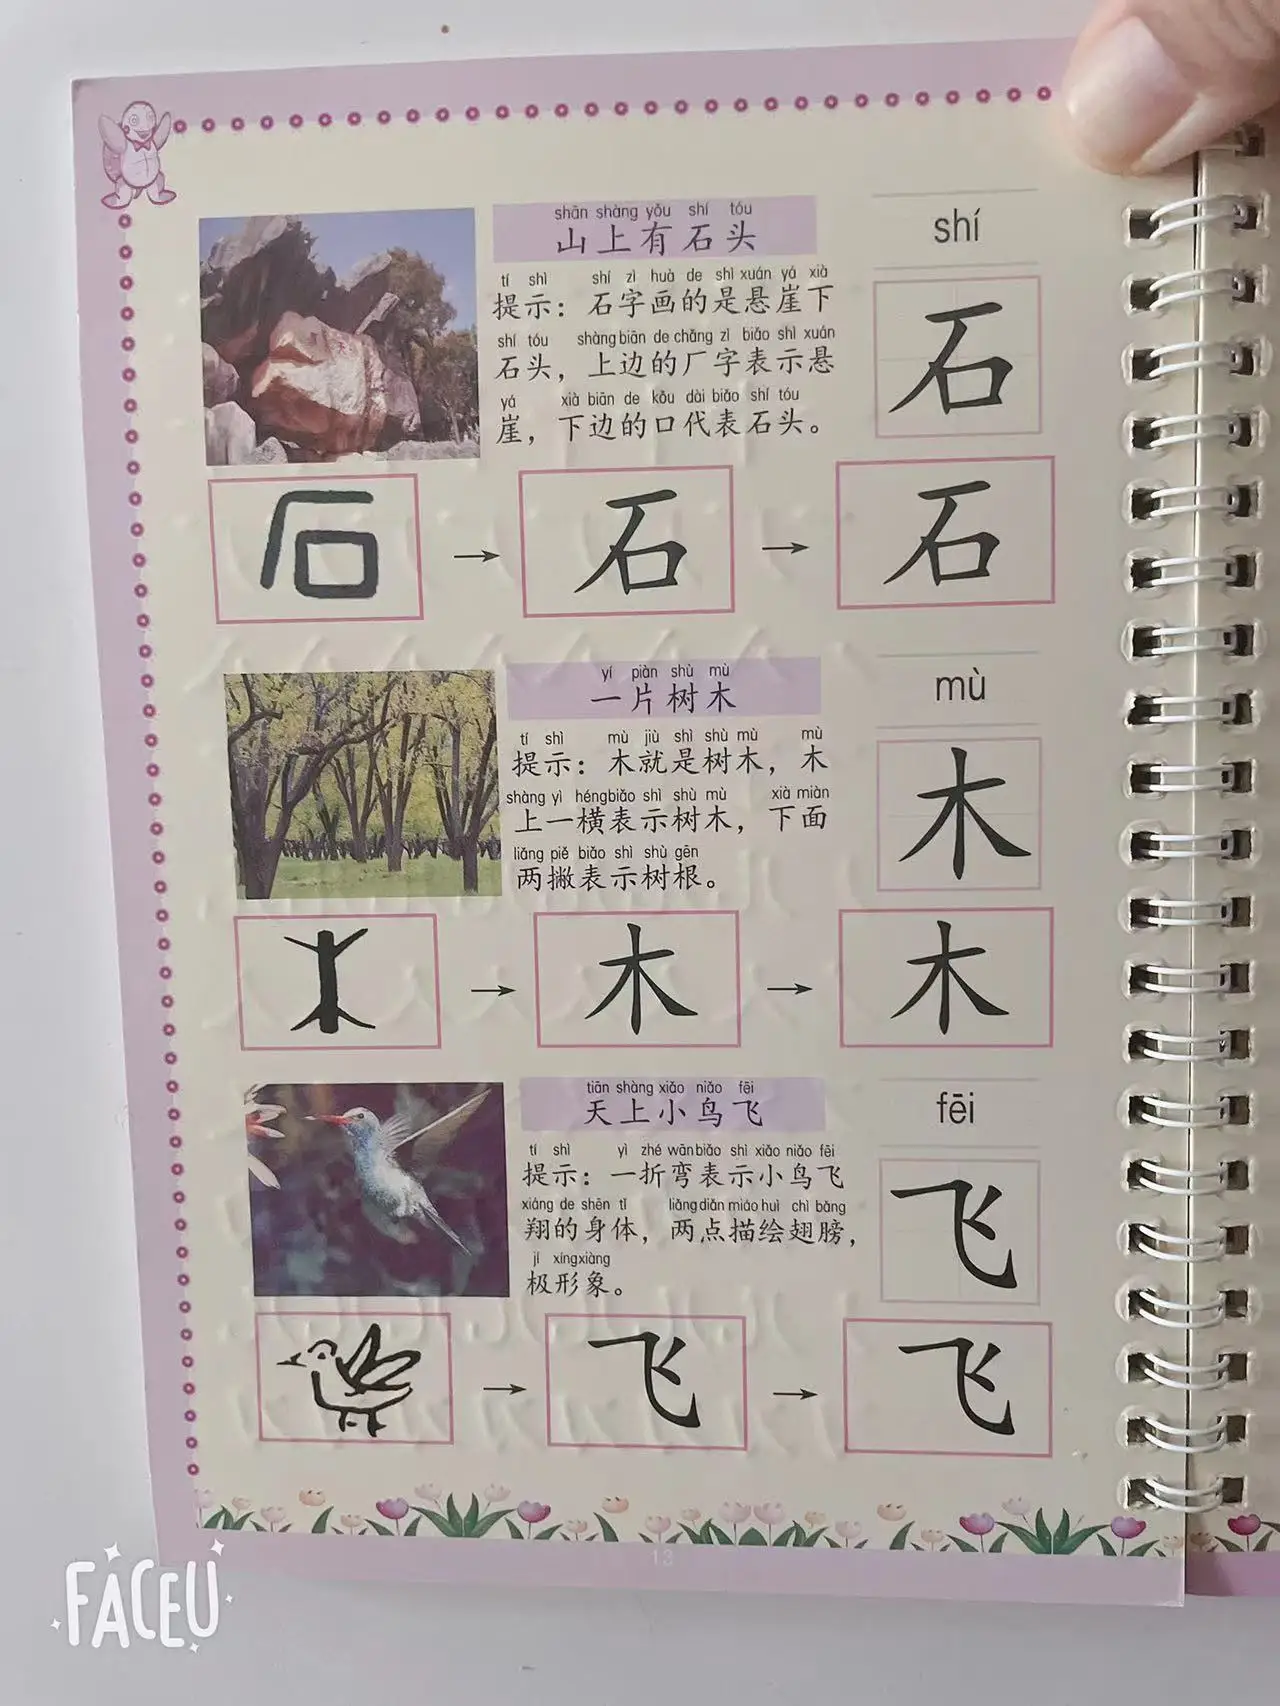 shān shàng yǒu shí tóu
山上有石头
shí
tí shì shí zì huà de shì xuán yá xià
提示：石字画的是悬崖下
shí tóu shàng biān de chǎng zì biǎo shì xuán
石头，上边的厂字表示悬
yá xià biān de kǒu dài biǎo shí tóu
崖，下边的口代表石头。
石
石 → 石 → 石
yí piàn shù mù
一片树木
mù
tí shì mù jiù shì shù mù mù
提示：木就是树木，木
shàng yì héng biǎo shì shù mù xià miàn
上一横表示树木，下面
liǎng piě biǎo shì shù gēn
两撇表示树根。
木
→ 木 → 木
tiān shàng xiǎo niǎo fēi
天上小鸟飞
fēi
tí shì yì zhé wān biǎo shì xiǎo niǎo fēi
提示：一折弯表示小鸟飞
xiáng de shēn tǐ liǎng diǎn miáo huì chì bǎng
翔的身体，两点描绘翅膀，
jí xíng xiàng
极形象。
飞
→ 飞 → 飞
13
FACEU